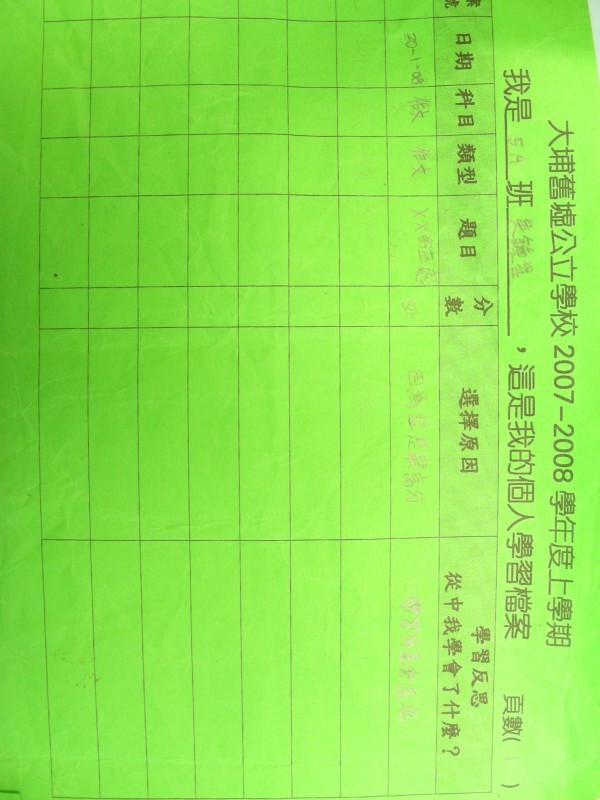 大埔舊墟公立學校 2007-2008 學年度上學期
我是 5A 班，這是我的個人學習檔案 頁數( 1 )
號 日期 科目 類型 題目 分數 選擇原因 學習反思
從中我學會了什麼？
20-1-08 作文 作文 XX的 80 因為這是最高分